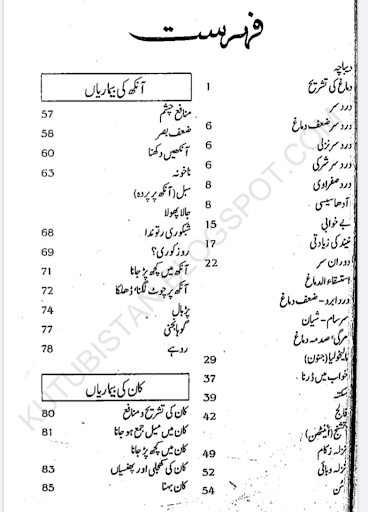 فہرست
دیباچہ
دماغ کی تشریح 1
درد سر
درد سر ضعف دماغ 6
درد سر نزلی 6
درد سر شرکی 6
درد صفراوی 8
آدھا سیسی 8
بے خوابی 15
نیند کی زیادتی 17
دوران سر 22
استسقاء الدماغ
درد ابرو - ضعف دماغ
سرسام - نسیان
مرگی، صدمہ دماغ
مالیخولیا (جنون) 29
خواب میں ڈرنا 37
سکتہ 39
فالج 42
تشنج (اینٹھن)
نزلہ زکام 49
نزلہ وبائی 52
سُن 54
آنکھ کی بیماریاں
منافع چشم 57
ضعف بصر 58
آنکھیں دکھنا 60
ناخونہ 63
سبل (آنکھ پر پردہ)
جالا پھولا
شبکوری رتوندا 68
روز کوری؟ 69
آنکھ میں کچھ پڑ جانا 71
آنکھ پر چوٹ لگنا، ڈھلکا 72
پڑبال 74
گوہانجنی 77
روہے 78
کان کی بیماریاں
کان کی تشریح و منافع 80
کان میں میل جمع ہو جانا 81
کان میں کچھ پڑ جانا
کان کی کھجلی اور پھنسیاں 83
کان بہنا 85
KUTUBISTAN.BLOGSPOT.COM